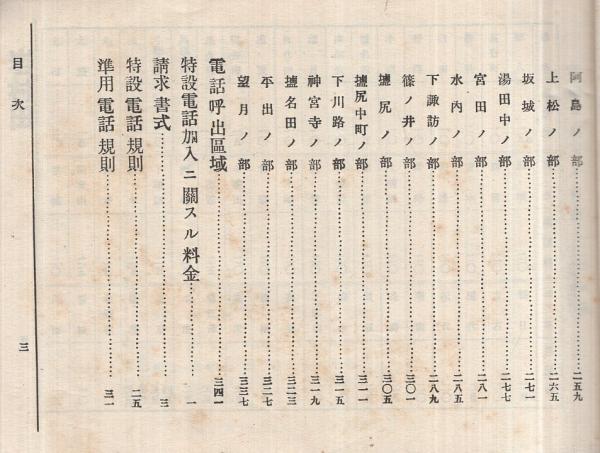 阿島ノ部 二五九
上松ノ部 二六五
坂城ノ部 二七一
湯田中ノ部 二七七
宮田ノ部 二八一
水内ノ部 二八五
下諏訪ノ部 二八九
篠ノ井ノ部 三〇一
塩尻ノ部 三〇五
塩尻中町ノ部 三一一
下川路ノ部 三一五
神宮寺ノ部 三一九
塩名田ノ部 三二三
平出ノ部 三二七
望月ノ部 三三七
電話呼出區域 三四一
特設電話加入ニ關スル料金 一
請求書式 三
特設電話規則 二五
準用電話規則 三一
目次 三